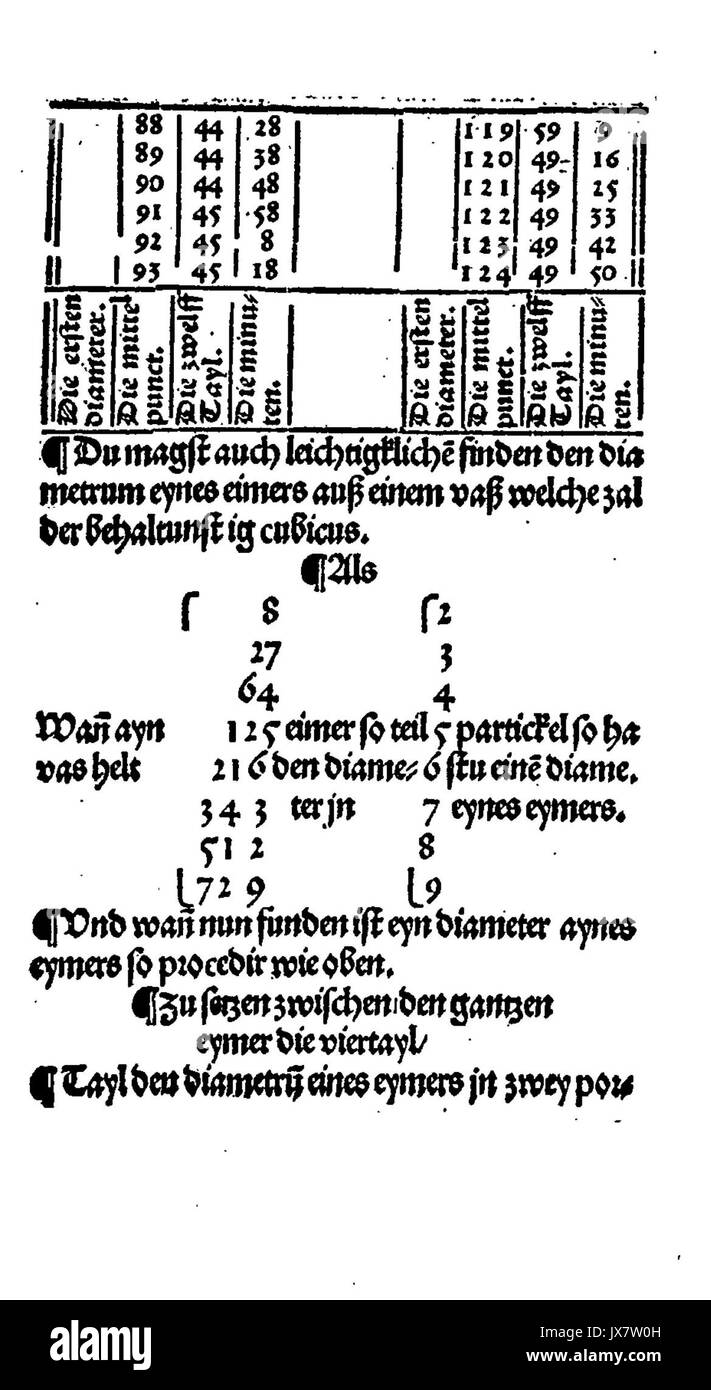 88 44 28 119 59 9
89 44 38 120 49 16
90 44 48 121 49 25
91 45 58 122 49 33
92 45 8 123 49 42
93 45 18 124 49 50
Die ersten diameter.
Die mittel punct.
Die zwelff Tayl.
Die minu⸗ ten.
Die ersten diameter.
Die mittel punct.
Die zwelff Tayl.
Die minu⸗ ten.
¶ Du magst auch leichtigklichē finden den dia
metrum eynes eimers auß einem vaß welche zal
der behaltunst ig cubicus.
¶ Als
8 2
27 3
64 4
Wañ ayn 125 eimer so teil 5 partickel so ha
vas helt 216 den diame⸗ 6 stu einē diame.
343 ter jn 7 eynes eymers.
512 8
729 9
¶ Und wañ nun funden ist eyn diameter aynes
eymers so procedir wie oben.
¶ Zu setzen zwischen den gantzen
eymer die viertayl/
¶ Tayl den diametrū eines eymers jn zwey por⸗
alamy
Image ID: JX7W0H
www.alamy.com